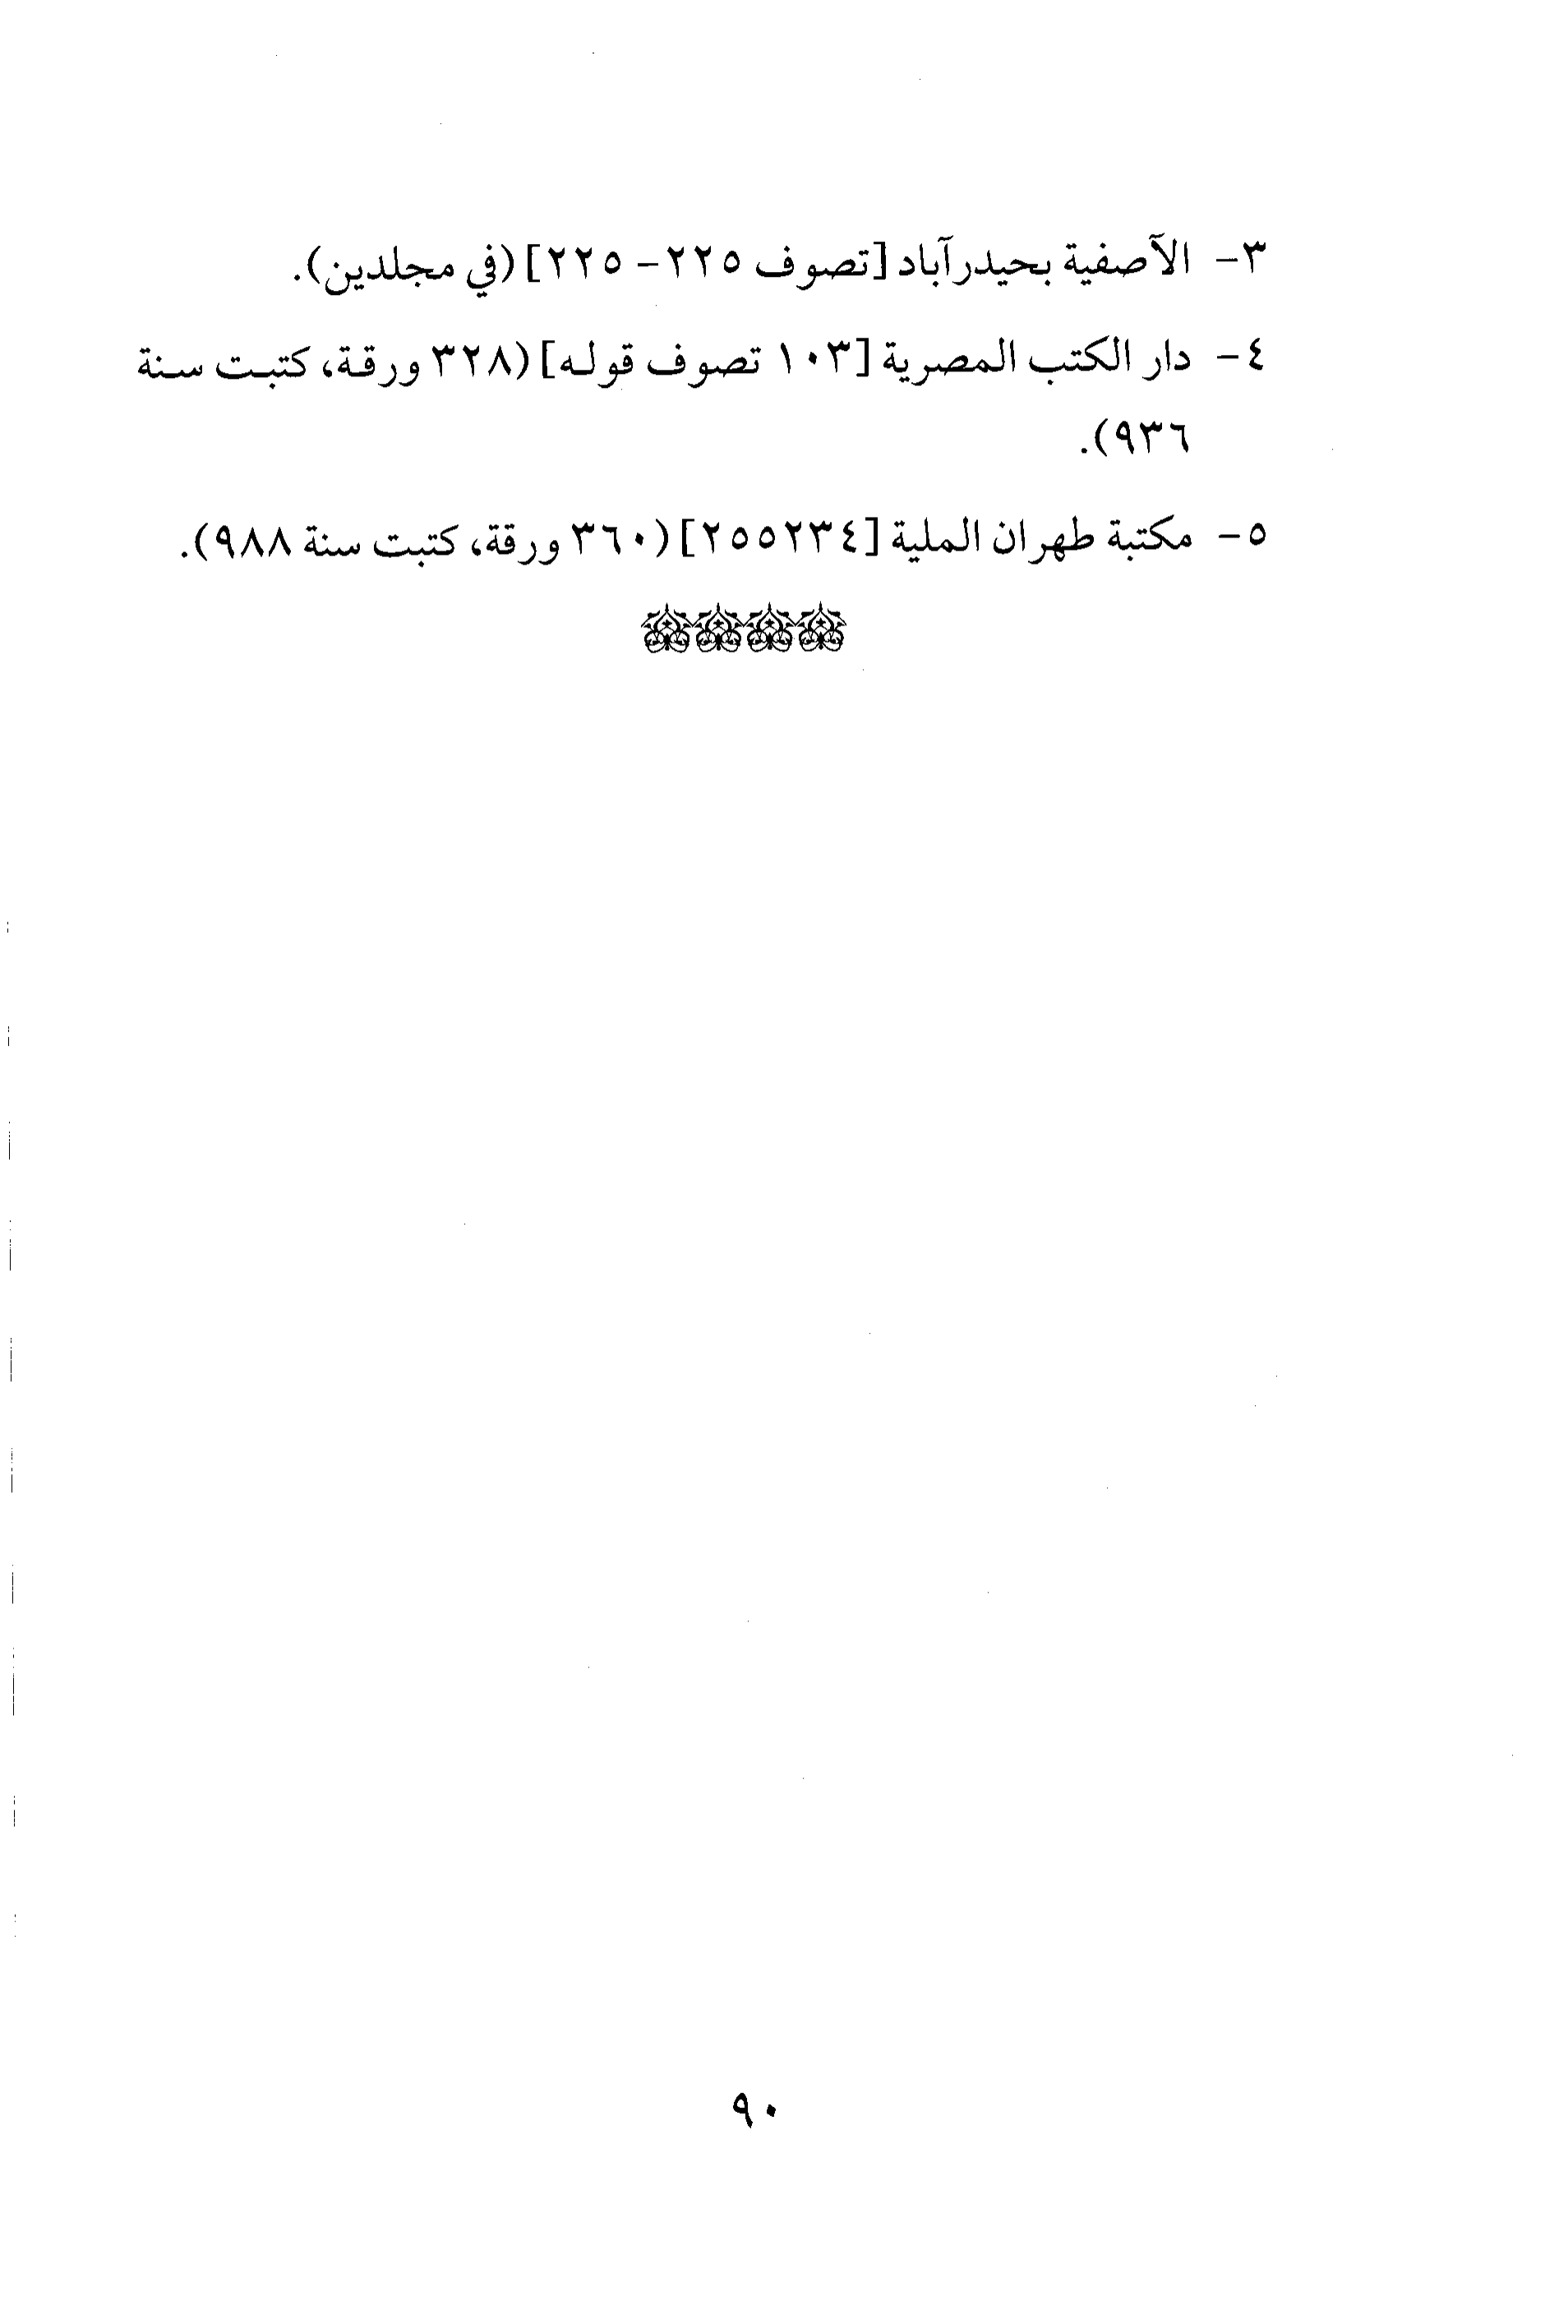 ٣- الآصفية بحيدرآباد [تصوف ٢٢٥ - ٢٢٥] (في مجلدين).
٤- دار الكتب المصرية [١٠٣ تصوف قوله] (٣٢٨ ورقة، كتبت سنة
٩٣٦).
٥- مكتبة طهران الملية [٢٥٥٢٣٤] (٣٦٠ ورقة، كتبت سنة ٩٨٨).
٩٠